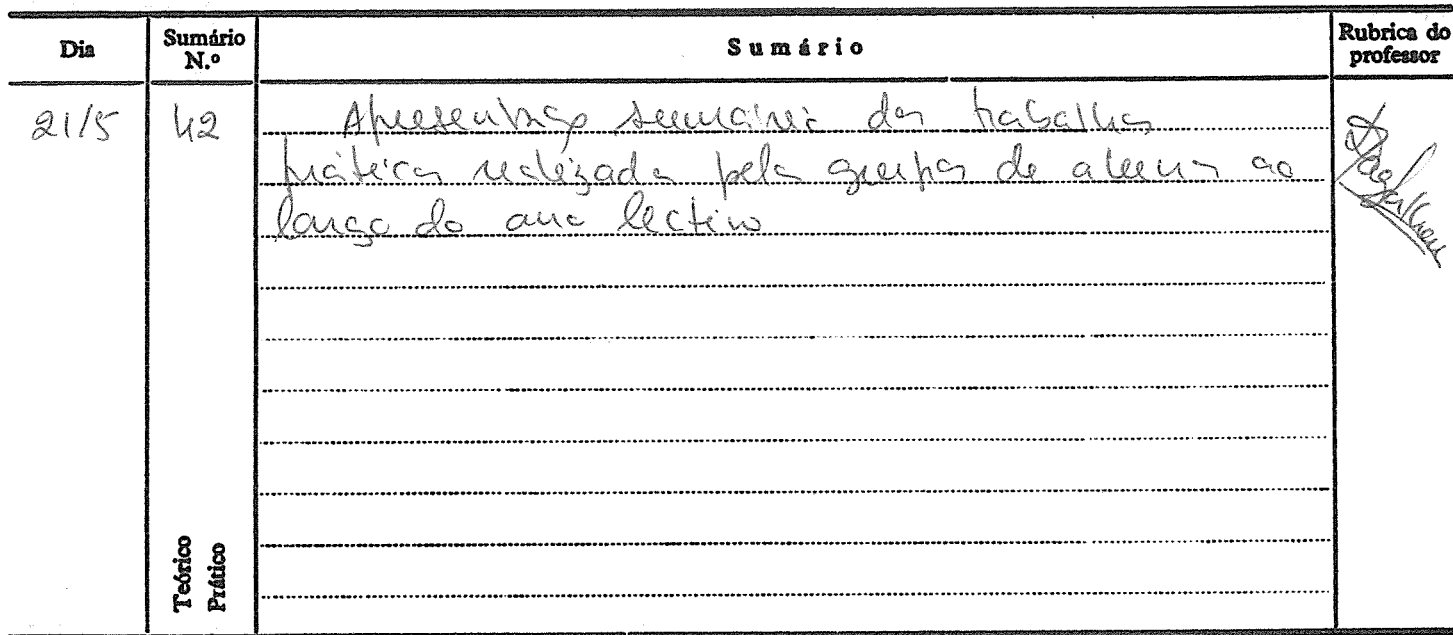 Dia Sumário N.º Sumário Rubrica do professor
21/5 42 Apresentação sumária dos trabalhos
práticos realizados pelos grupos de alunos ao
longo do ano lectivo
Teórico
Prático